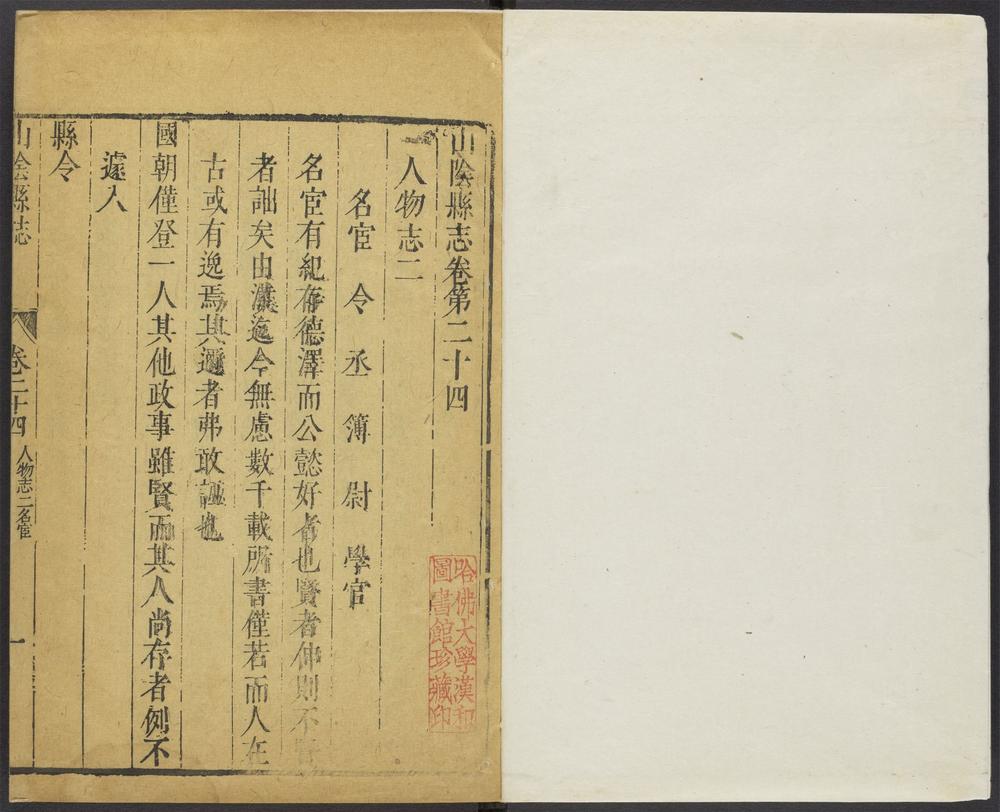 山陰縣志卷第二十四
人物志二
名宦 令 丞 簿 尉 學官
名宦有紀存德澤而公懿好者也賢者伸則不
者詘矣由漢迄今無慮數千載所書僅若而人在
古或有逸焉其邇者弗敢誣也
國朝僅登一人其他政事雖賢而其人尚存者例不
遽入
縣令
山陰縣志 卷二十四 人物志二名宦 一
哈佛大學漢和
圖書館珍藏印